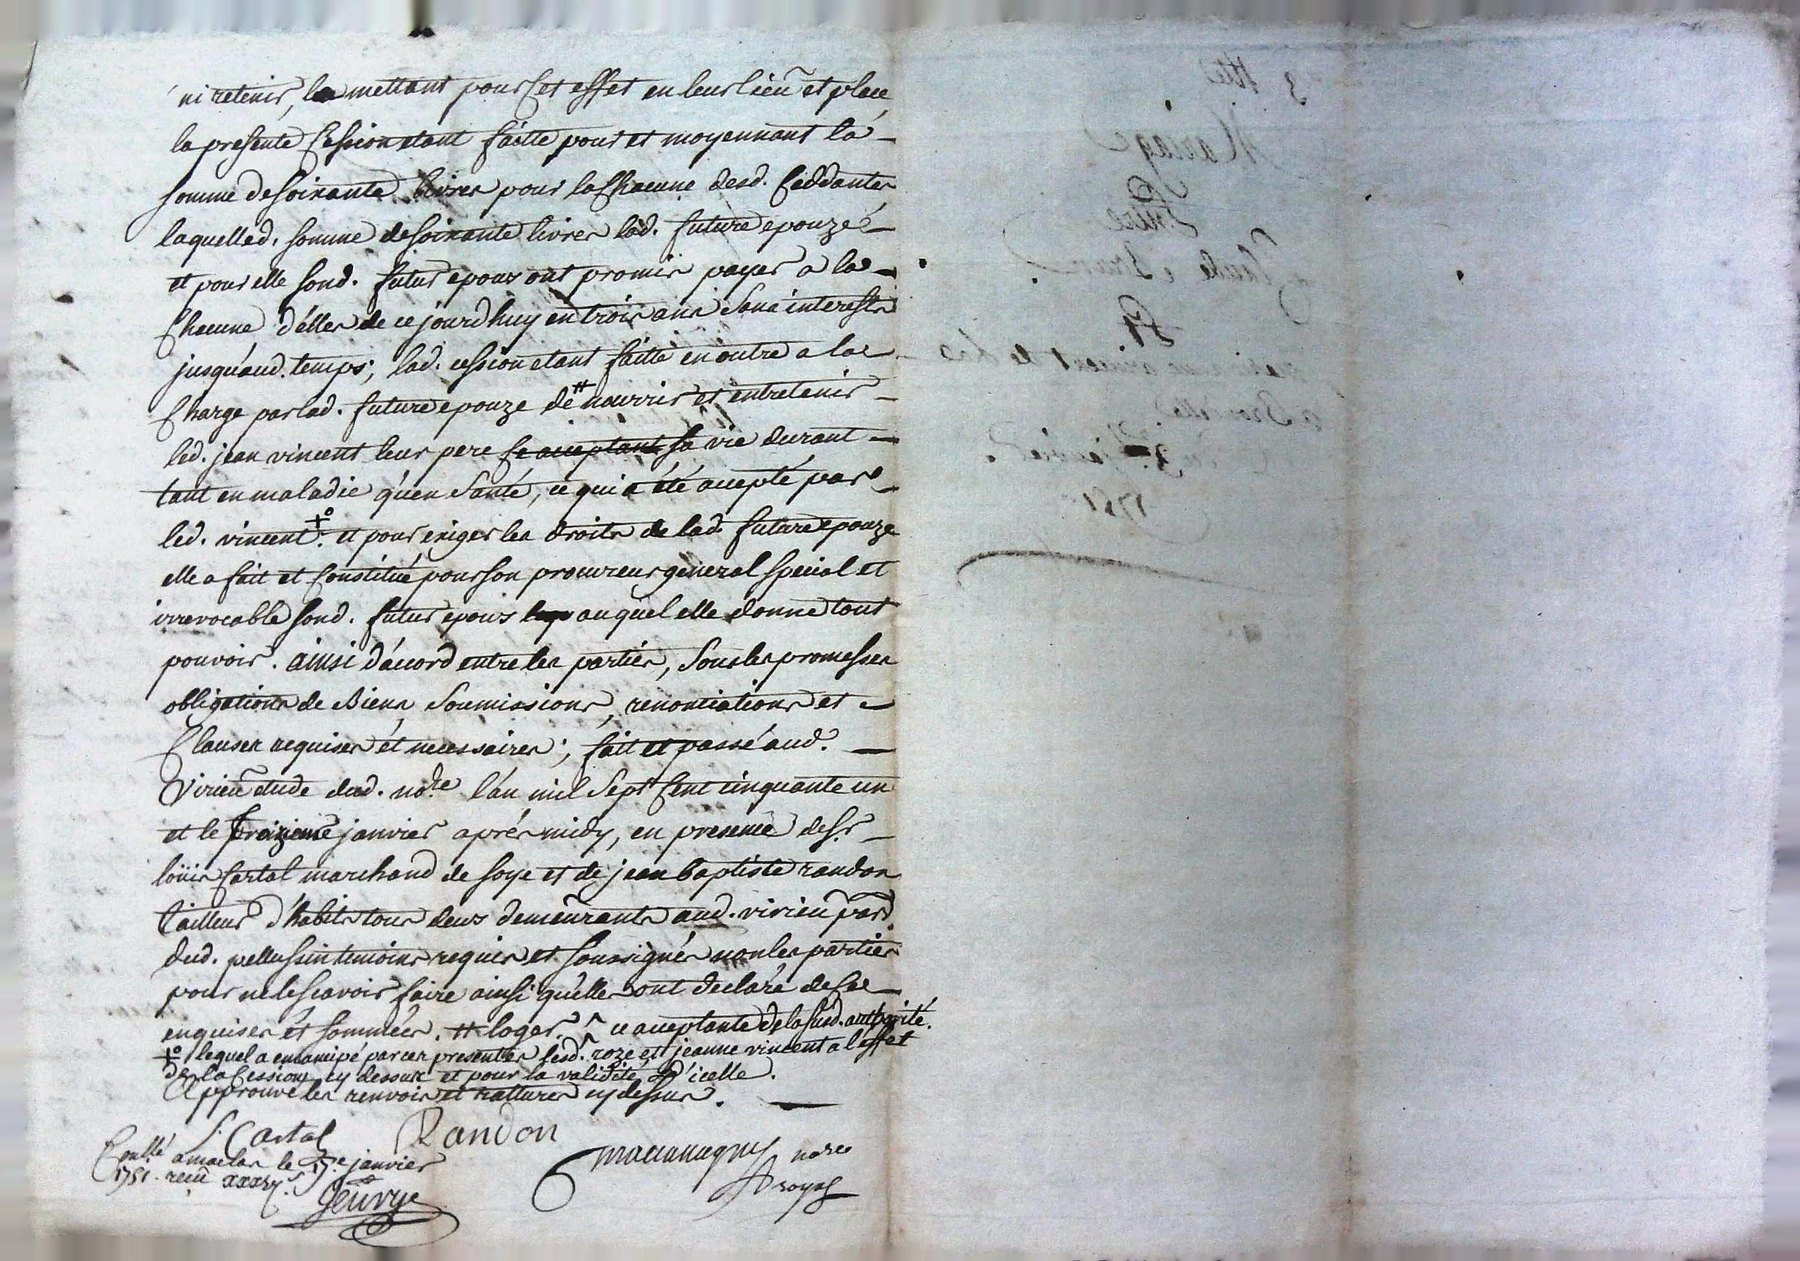 ni retenir, la mettant pour cet effet en leur lieu et place
la presente cession etant faitte pour et moyennant la
somme de soixante livres pour la chacune desd. ceddantes
laquelle d. somme de soixante livres lad. future epouze
et pour elle sond. futur epoux ont promis payer a la
chacune d'elles de ce jourd'huy en trois ans sans interests
jusqu'aud. temps; lad. cession etant faitte en outre a la
charge par lad. future epouze de # nourrir et entretenir
led. jean vincent leur pere ce acceptant sa vie durant
tant en maladie qu'en santé, ce qui a été accepté par
led. vincent. et pour exiger les droits de lad. future epouze
elle a fait et constitué pour son procureur general special et
irrevocable sond. futur epoux auquel elle donne tout
pouvoir. ainsi d'accord entre les parties, sous les promesses
obligations de biens soumissions, renontiations et
clauses requises et necessaires; fait et passé aud.
Virieu etude dud. no.re l'an mil sept cent cinquante un
et le treizieme janvier aprés midy, en presence de s.r
loüis Cartal marchand de soye et de jean baptiste randon
tailleur d'habits tous deux demeurants aud. virieu
dud. pellussin temoins requis et soussignés non les parties
pour ne le scavoir faire ainsi qu'elles ont declaré de ce
enquises et sommées. # loger. ^ ce acceptante de la susd. authorité.
lequel a emancipé par ces presentes lesd. roze et jeanne vincent a l'effet
de la cession cy dessus et pour la validité d'icelle.
Approuve les renvois et rattures cy dessus.
L. Cartal Randon
Con.llé a maclas le 17.e janvier
1751. recu
Jeuvye
no.re
royal